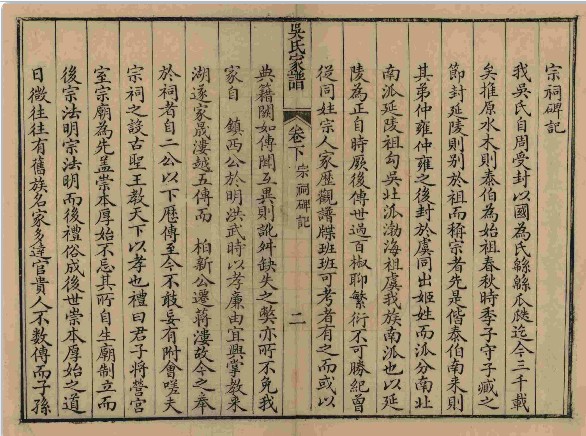 宗祠碑記
我吳氏自周受封以國為氏緜緜瓜瓞迄今三千載
矣推原水木則泰伯為始祖春秋時季子守子臧之
節封延陵則别於祖而稱宗者先是偕泰伯南來則
其弟仲雍仲雍之後封於虞同出姬姓而派分南北
南派延陵祖勾吳北派渤海祖虞我族南派也以延
陵為正自時厥後傳世過百椒聊繁衍不可勝紀曾
從同姓宗人家歷觀譜牒班班可考者有之而或以
吳氏家譜
卷下
宗祠碑記
二
典籍闕如傳聞互異則訛舛缺失之獘亦所不免我
家自 鎮西公於明洪武時以孝廉由宜興掌教來
湖遂家晟漊越五傳而 柏新公遷蔣漊故今之奉
於祠者自二公以下歷傳至今不敢妄有附會嗟夫
宗祠之設古聖王教天下以孝也禮曰君子將營宮
室宗廟為先盖崇本厚始不忘其所自生廟制立而
後宗法明宗法明而後禮俗成後世崇本厚始之道
日微往往有舊族名家多達官貴人不數傳而子孫